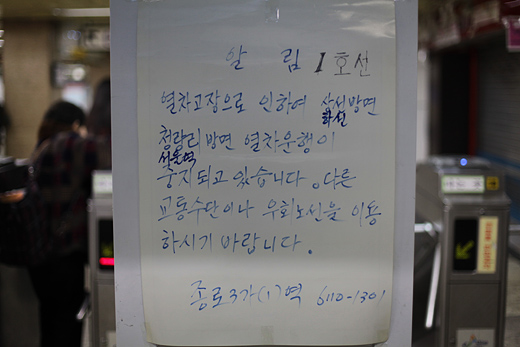 알 림 1호선
열차고장으로 인하여 상선방면
하선
청량리방면 열차운행이
서울역
중지되고 있습니다. 다른
교통수단이나 우회노선을 이용
하시기 바랍니다.
종로3가(1)역 6110-1301